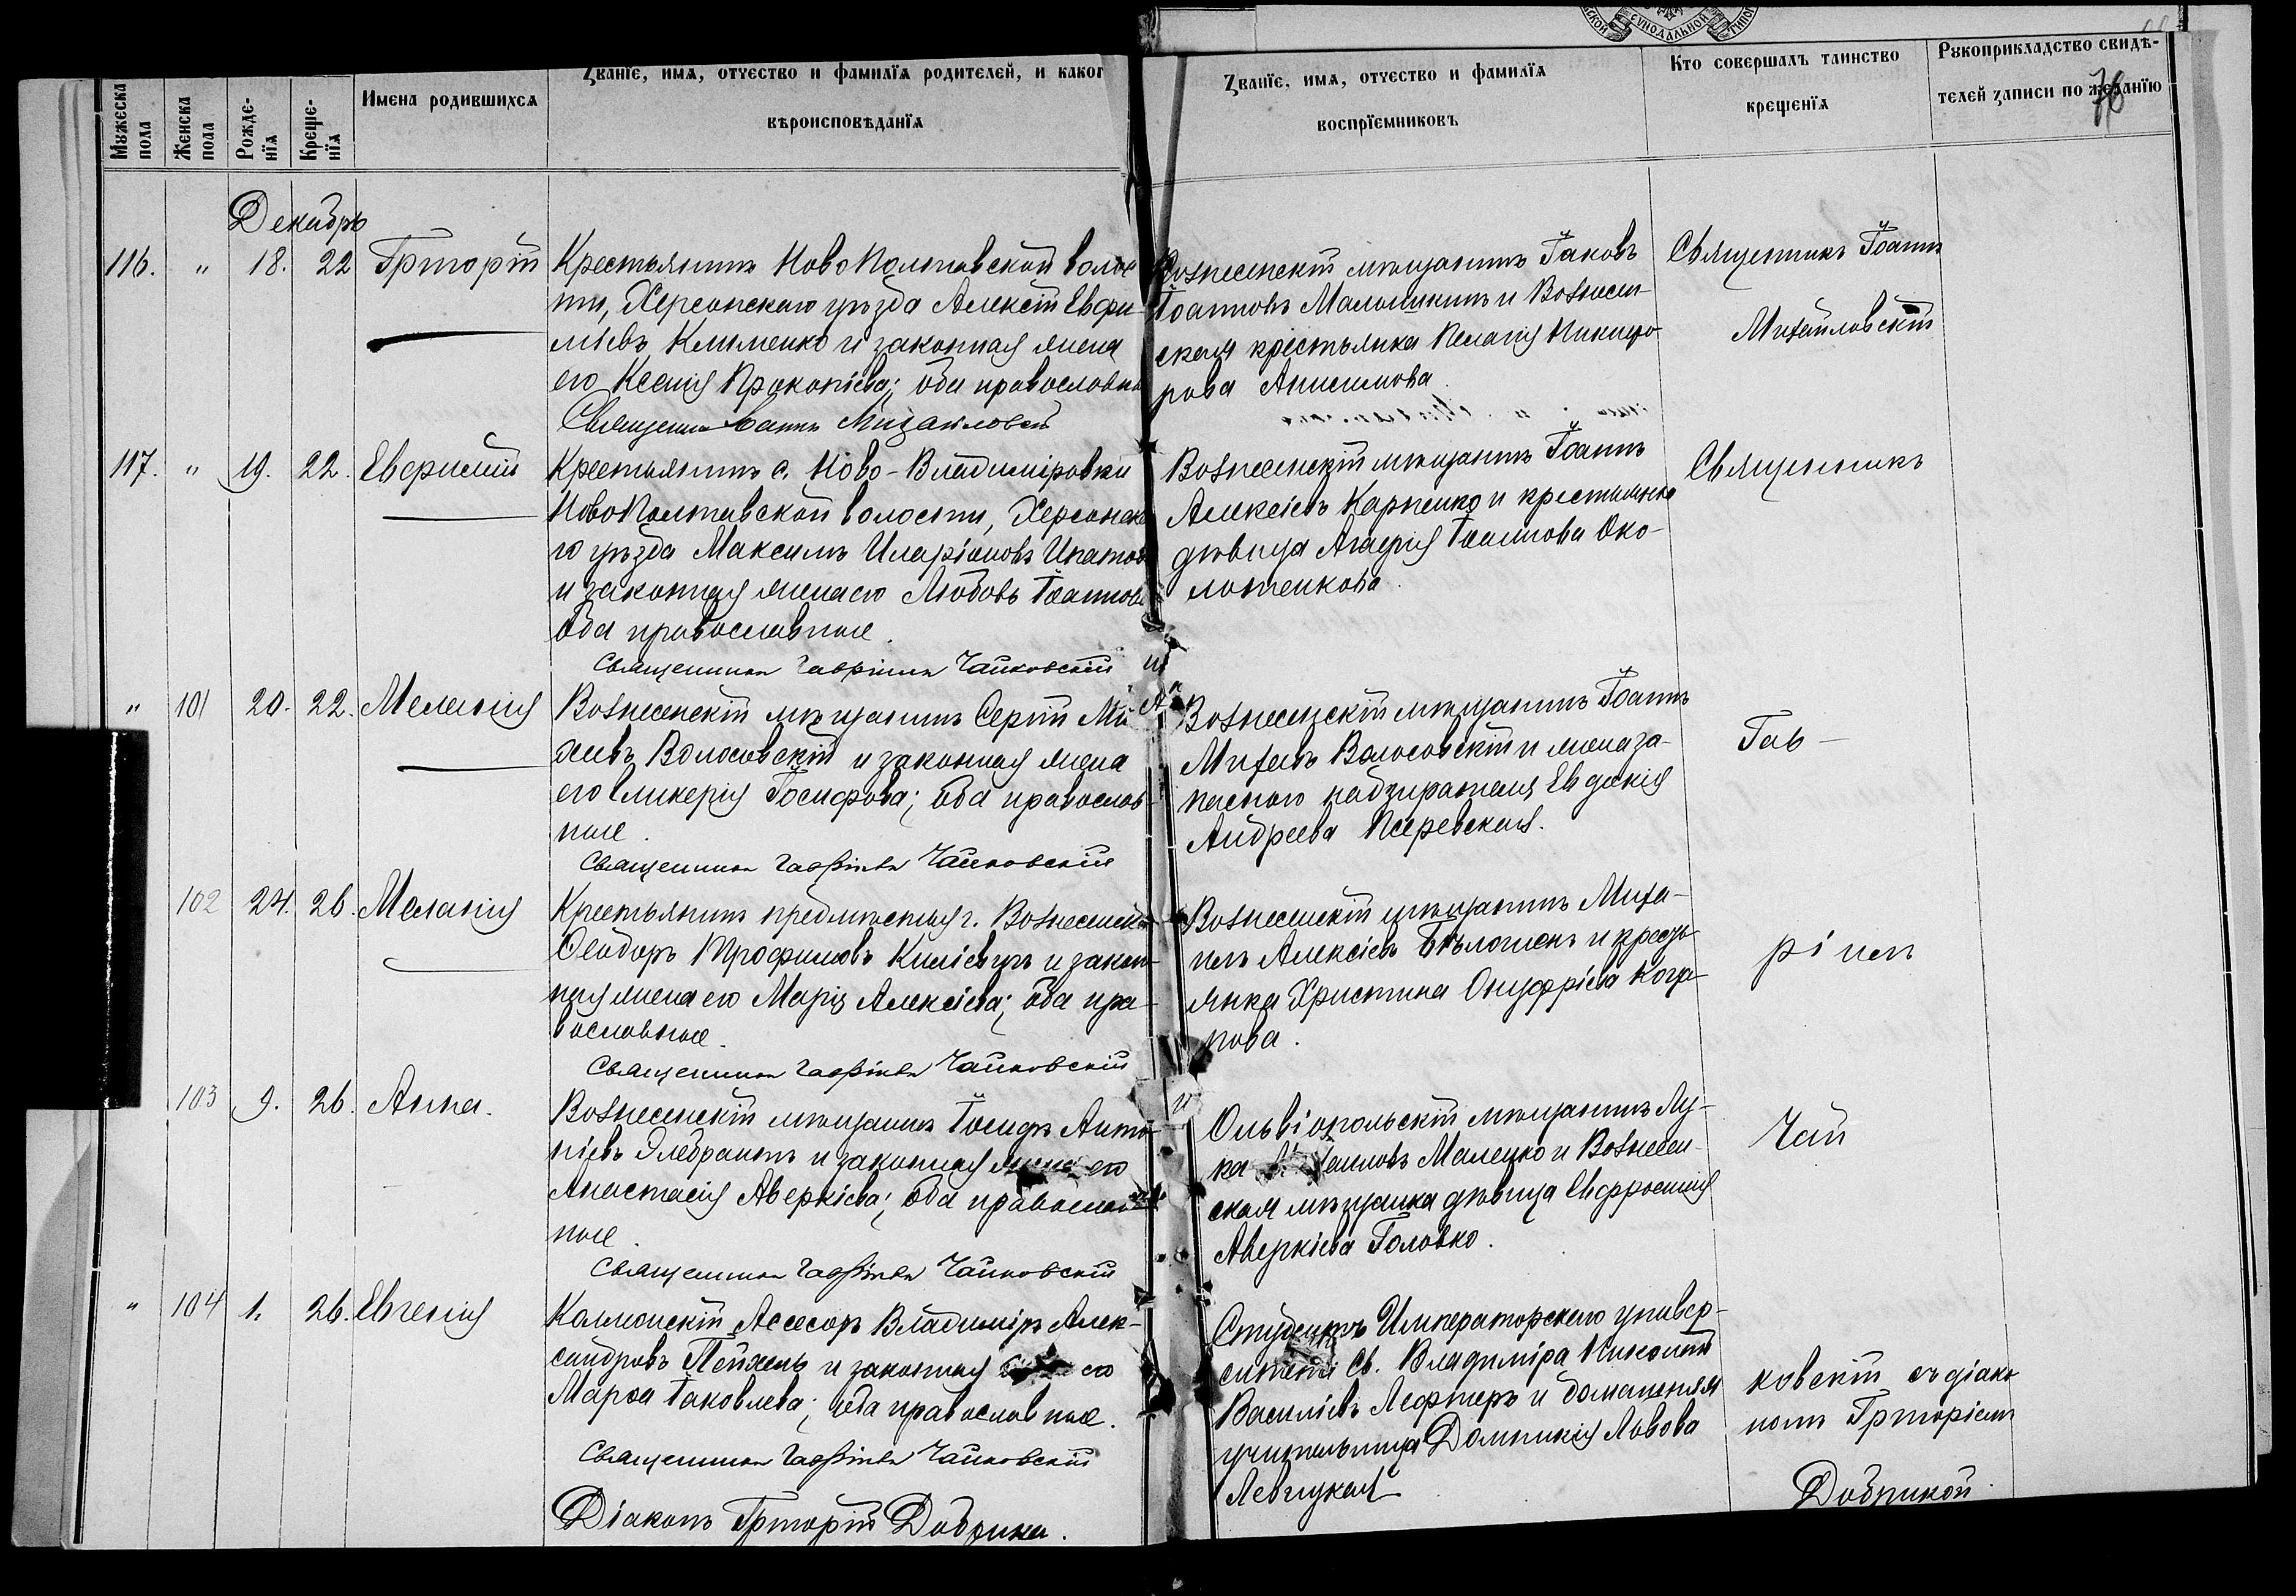 СѴНОДАЛЬНОЙ
Мѹжеска пола
Женска пола
Рожде-нїѧ
Креще-нїѧ
Имена родившихсѧ
Званїе, имѧ, отчество и фамилїѧ родителей, и каког
вѣроисповѣданїѧ
Званїе, имѧ, отчество и фамилїѧ
воспрїемниковъ
Кто совершалъ таинство
крещенїѧ
Рѹкоприкладство свидѣ-
телей записи по желанїю
76
Декабрь
116. " 18. 22 Григорій
Крестьянинъ НовоПолтавской волос
ти, Херсонскаго уѣзда Алексій Евфи-
міевъ Клименко и законная жена
его Ксенія Прокопіева; оба православны
Священникъ Іоаннъ Михайловскій
Вознесенскій мѣщанинъ Іаковъ
Іоанновъ Малышкинъ и Вознесен-
ская крестьянка Пелагія Никифо
рова Анисимова.
Священникъ Іоаннъ
Михайловскій
117. " 19. 22. Евфимій
Крестьянинъ с. Ново-Владиміровки
НовоПолтавской волости, Херсонска
го уѣзда Максимъ Иларіоновъ Ипатов
и законная жена его Любовь Іоаннова
оба православные.
Священникъ Гавріилъ Чайковскій
Вознесенскій мѣщанинъ Іоаннъ
Алексіевъ Карпенко и крестьянка
дѣвица Агафія Іоаннова Око-
лотенкова.
Священникъ
" 101 20. 22. Меланія
Вознесенскій мѣщанинъ Сергій Ми
хеевъ Волосовскій и законная жена
его Гликерія Іосифова; оба православ-
ные.
Священникъ Гавріилъ Чайковскій
Вознесенскій мѣщанинъ Іоаннъ
Михеевъ Волосовскій и жена за-
паснаго надзирателя Евдокія
Андреева Псаревская.
Гав-
102 24. 26. Меланія
Крестьянинъ предмѣстья г. Вознесенска
Ѳеодоръ Трофимовъ и закон-
ная жена его Марія Алексіева; оба пра-
вославные.
Священникъ Гавріилъ Чайковскій
Вознесенскій мѣщанинъ Миха-
илъ Алексіевъ и кресть
янка Христина Онуфріева
нова.
ріилъ
103 9. 26. Анна.
Вознесенскій мѣщанинъ Іосифъ Анто-
ніевъ и законная жена его
Анастасія Аверкіева; оба православ
ные.
Священникъ Гавріилъ Чайковскій
Ольвіопольскій мѣщанинъ Лу-
ка Малецко и Вознесен-
ская мѣщанка дѣвица Евфросинія
Аверкіева Головко.
Чай
" 104 1. 26. Евгенія
Коллежскій Асесоръ Владиміръ Алек-
сандровъ и законная его
Марѳа Іаковлева; оба православные.
Священникъ Гавріилъ Чайковскій
Діаконъ Григорій Добрика.
Студентъ Императорскаго универ-
ситета Св. Владиміра Николай
Василіевъ Лефтеръ и домашняя
учительница Домникія Львова
Левицкая
ковскій съ діако
номъ Григоріемъ
Добрикой